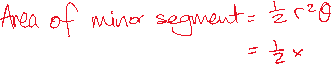 Area of minor segment = ½ r²θ
= ½ ×